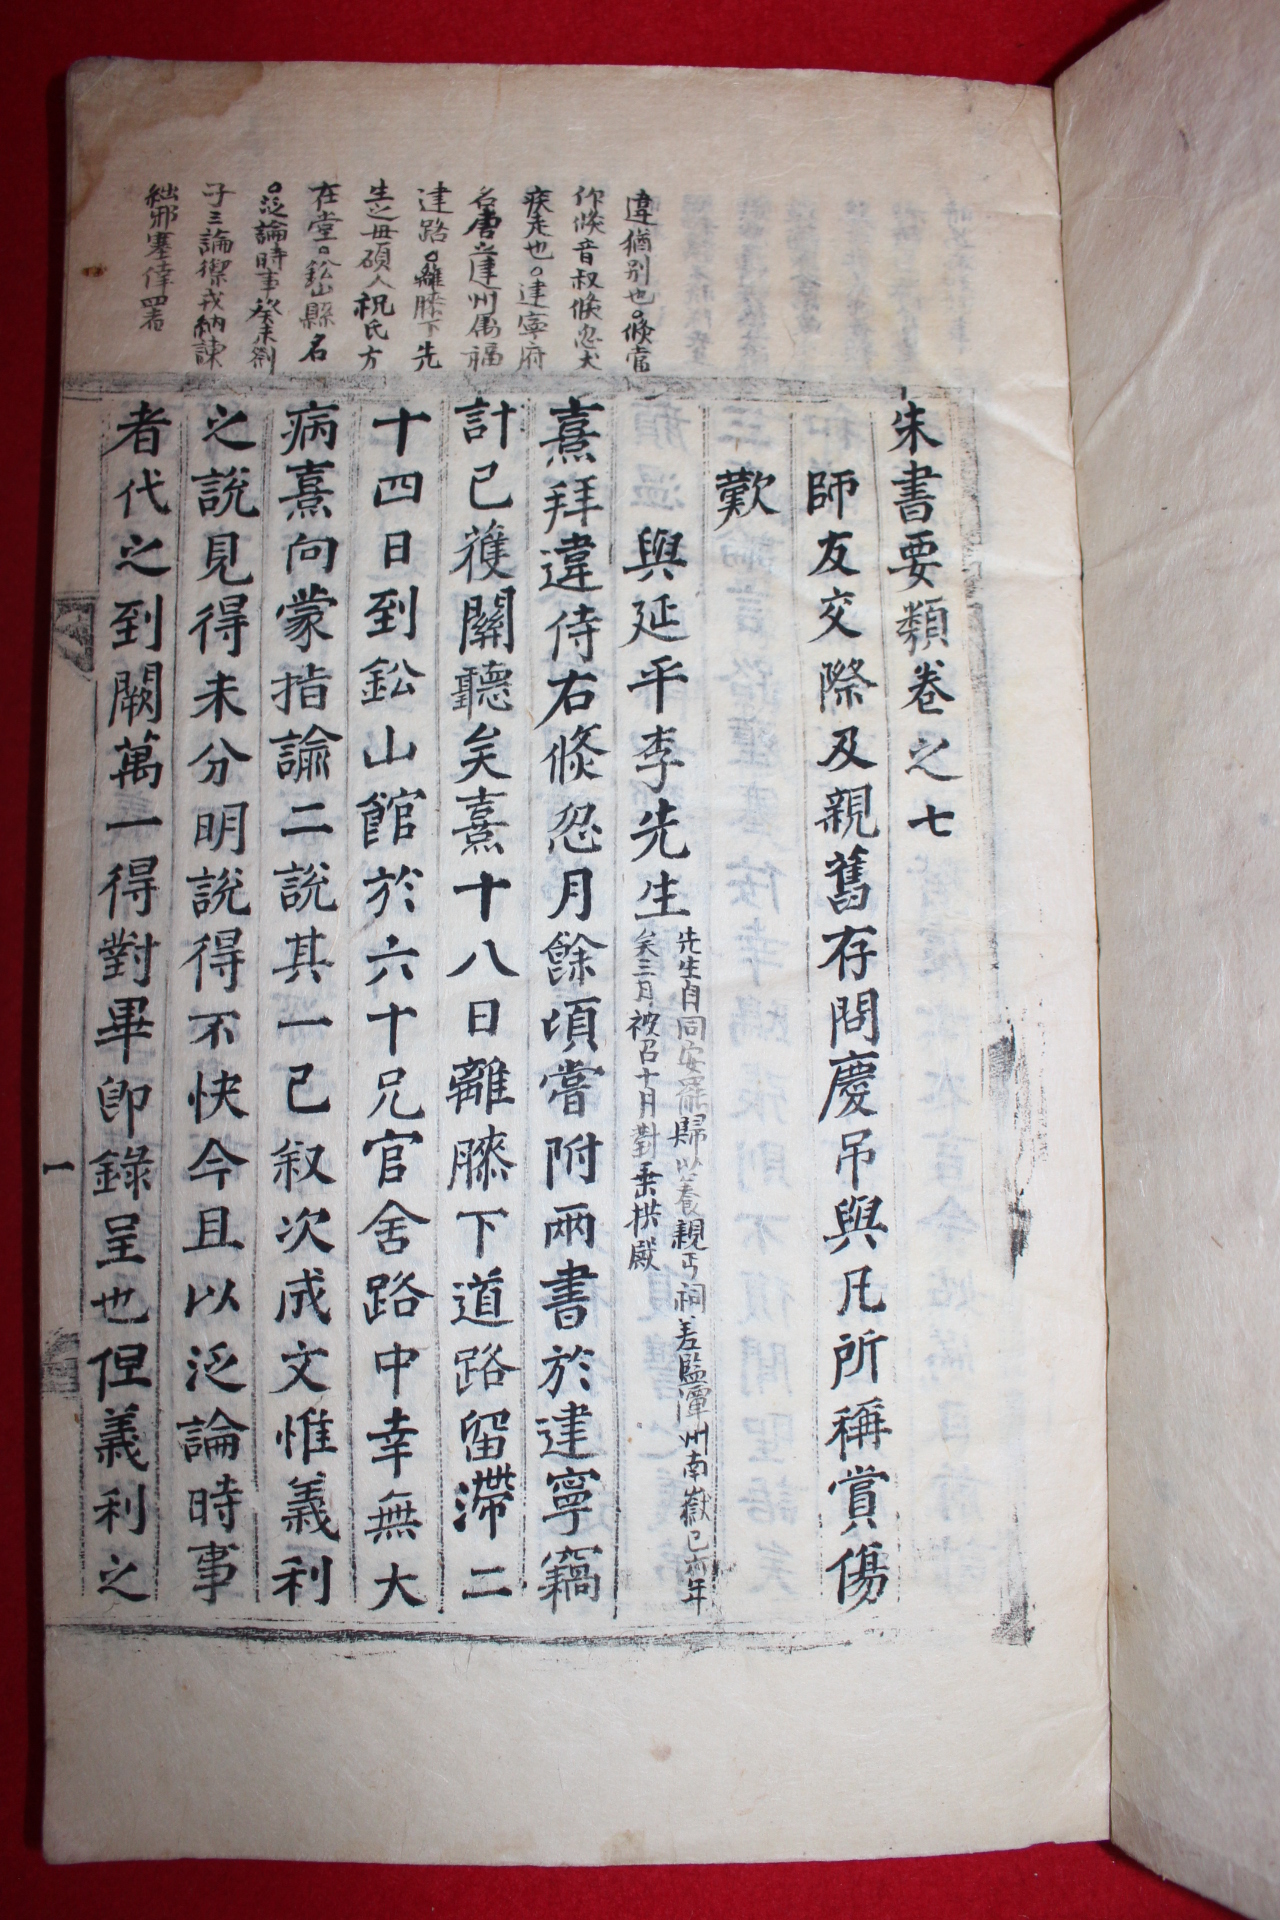 朱書要類卷之七
師友交際及親舊存問慶吊與凡所稱賞傷
歎
與延平李先生
先生自同安罷歸以養親丐祠差監潭州南嶽己卯年
矣三月被召十月對垂拱殿
熹拜違侍右倏忽月餘頃嘗附兩書於建寧竊
計已獲關聽矣熹十八日離膝下道路留滯二
十四日到鈆山館於六十兄官舍路中幸無大
病熹向蒙指諭二說其一已叙次成文惟義利
之說見得未分明說得不快今且以泛論時事
者代之到闕萬一得對畢卽錄呈也但義利之
一
違猶别也。倏當
作倐音叔倐忽犬
疾走也。建寧府
名唐之建州属福
建路。離膝下先
生之母碩人祝氏方
在堂。鈆山縣名
。泛論時事癸未劄
子三論禦戎納諫
絀邪塞倖四者